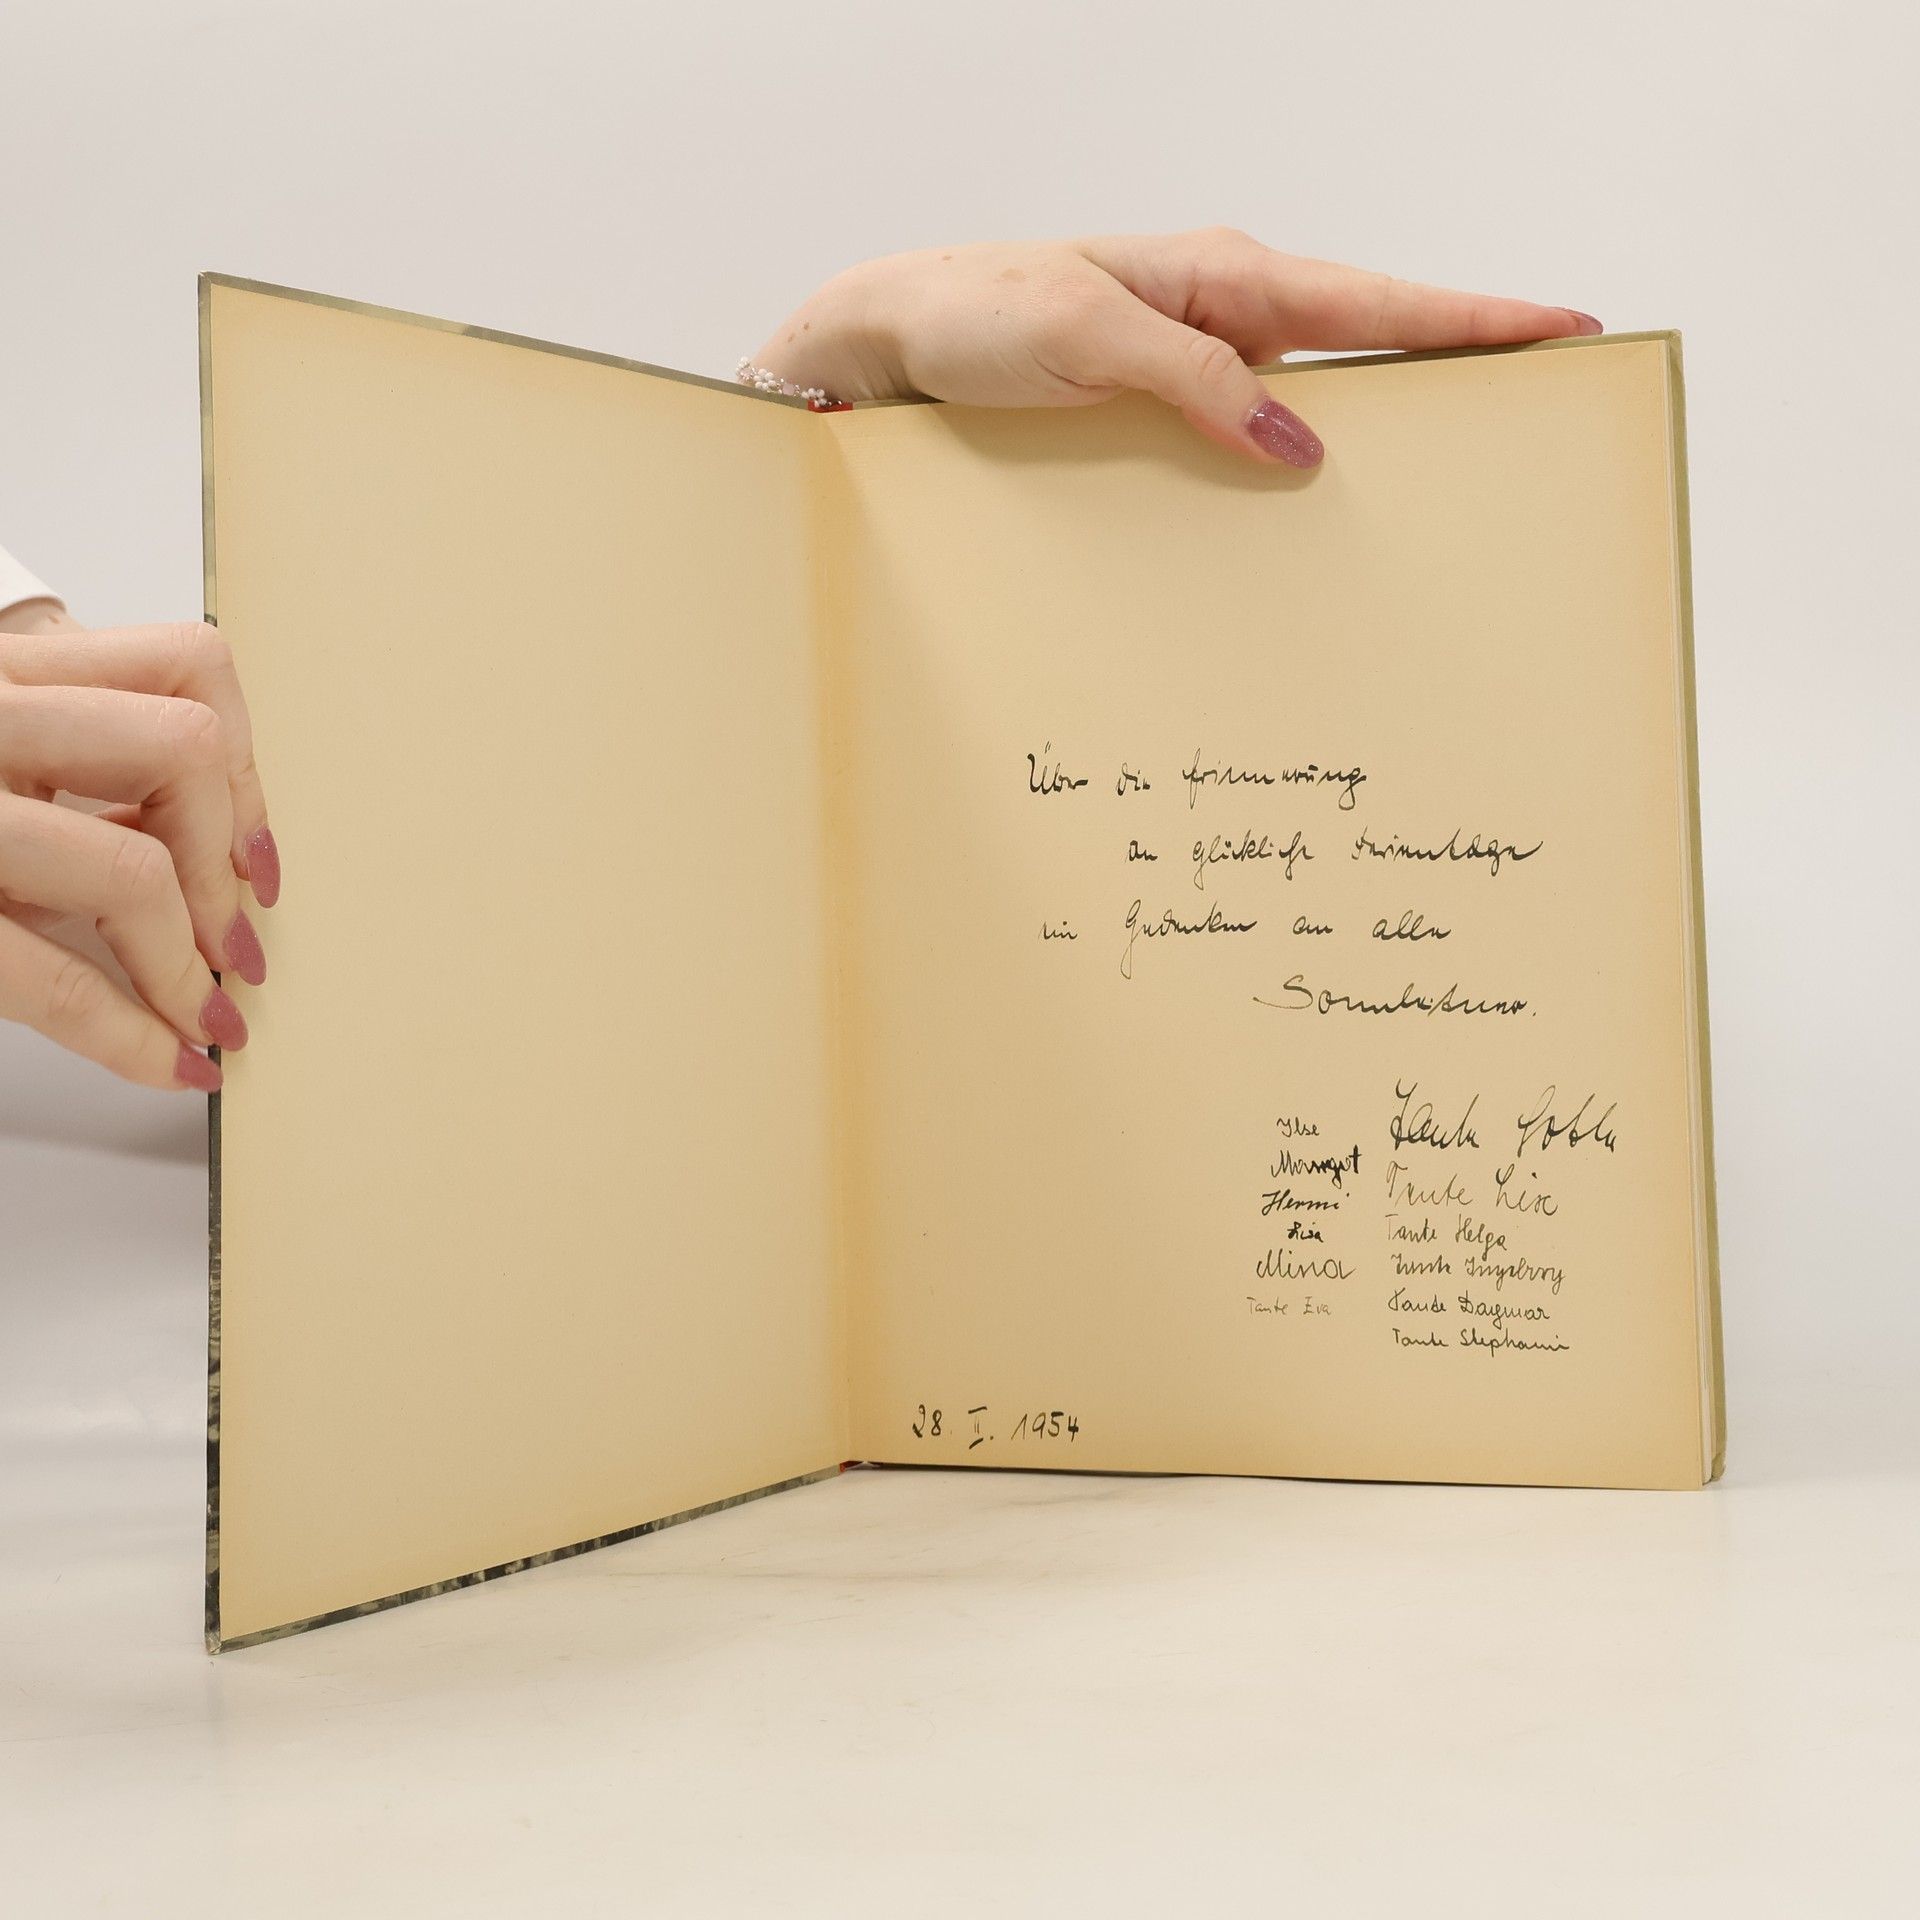 Über die Erinnerung
an glückliche Ferientage
ein Gedenken an alle
Ilse
Margot
Hermi
Lisa
Mina
Tante Eva
Tante
Tante Lise
Tante Helga
Tante Ingeborg
Tante Dagmar
Tante Stephani
28. II. 1954